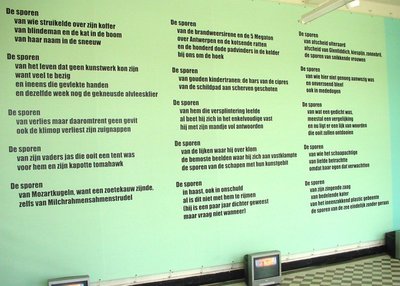 De sporen
van wie struikelde over zijn koffer
van blindeman en de kat in de boom
van haar naam in de sneeuw
De sporen
van het leven dat geen kunstwerk kon zijn
want veel te bezig
en ineens die gevlekte handen
en dezelfde week nog de gekneusde alvleesklier
De sporen
van verlies maar daaromtrent geen gevit
ook de klimop verliest zijn zuignappen
De sporen
van zijn vaders jas die ooit een tent was
voor hem en zijn kapotte tomahawk
De sporen
van Mozartkugeln, want een zoetekauw zijnde,
zelfs van Milchrahmensahmenstrudel
De sporen
van de brandweersirene en de 5 Megaton
over Antwerpen en de kotsende ratten
en de honderd dode padvinders in de kelder
bij ons om de hoek
De sporen
van gouden kindertranen: de hars van de cipres
van de schildpad aan scherven geschoten
De sporen
van hen die versplintering leefde
al beet hij zich in het enkelvoudige vast
hij met zijn mandje vol antwoorden
De sporen
van de lijken waar hij over klom
de bemoste beelden waar hij zich aan vastklampte
de sporen van de schapen met hun kunstgebit
De sporen
in haast, ook in onschuld
al is dit niet met hem te rijmen
(hij is een paar jaar dichter geweest
maar vraag niet wanneer)
De sporen
van afscheid uiteraard
afscheid van Glenfiddich,
de sporen van snikkende vrouwen
De sporen
van wie hier niet genoeg aanwezig was
en onverzoend bleef
ook in mededogen
De sporen
van wat een gedicht was,
meestal een vergelijking
en nu ligt er een lijk van woorden
die ooit zullen ontdooien
De sporen
van wie het schaapachtige
van liefde betrachtte
omdat haar ogen dat verwachtten
De sporen
van zijn zingende zaag
van bedelende kater
van het ineenzakkend plastic gebeente
de sporen van de zee eindelijk zonder geraas